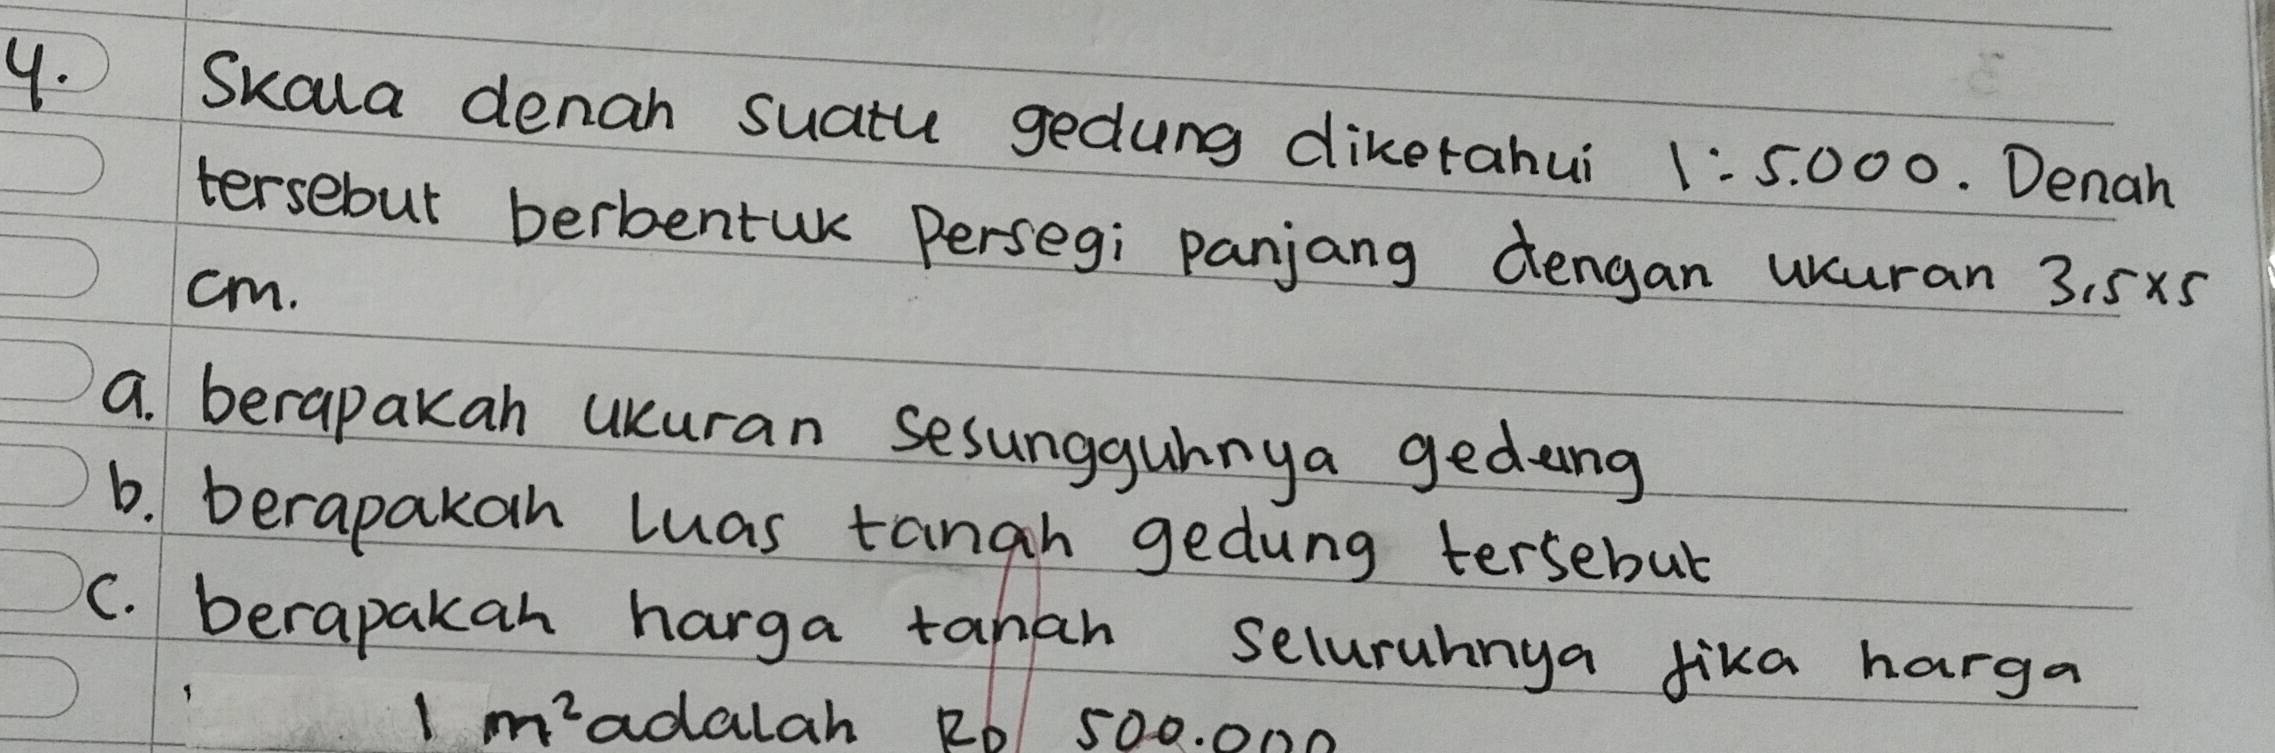 4. Skala denah suatu gedung diketahui 1:5.000. Denah
tersebut berbentuk Persegi panjang dengan ukuran 3,5x5
cm.
a. berapakah ukuran sesungguhnya gedung
b. berapakah luas tanah gedung tersebut
c. berapakah harga tanah seluruhnya jika harga
1 m² adalah Rp 500.000